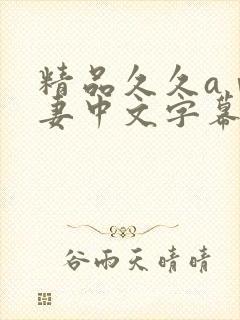 精品久久a
妻中文字幕
谷雨天晴晴